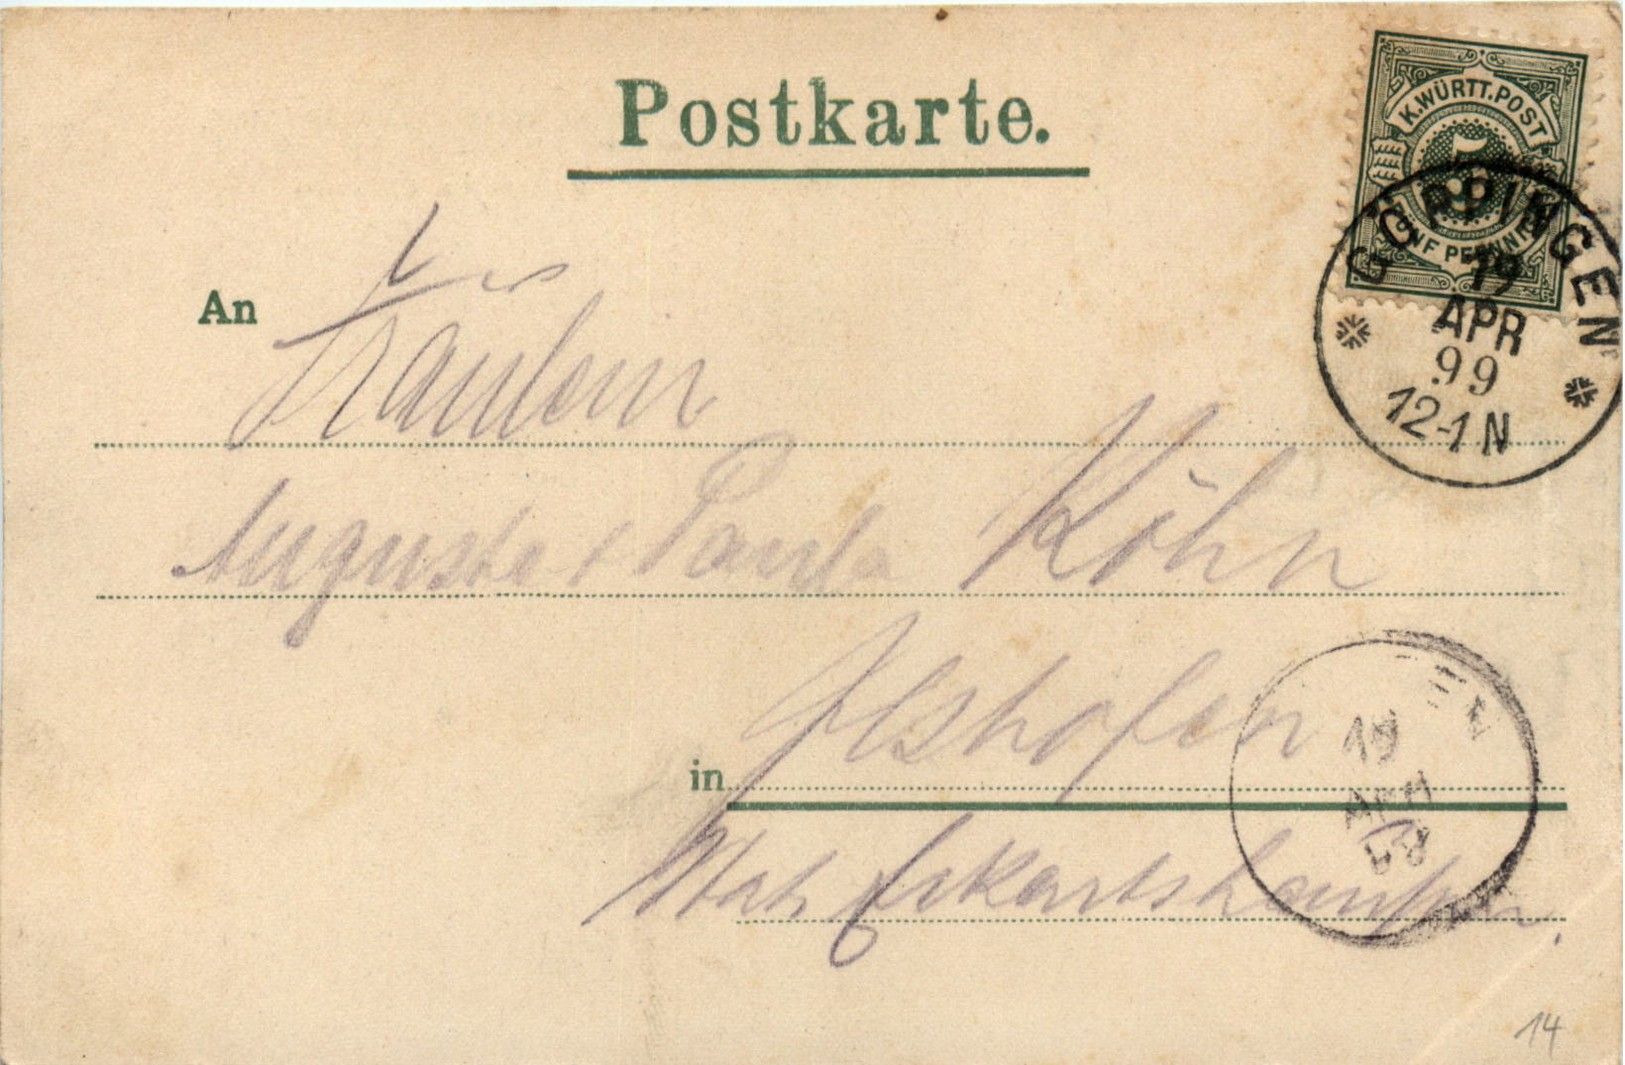 Postkarte.
K. WÜRTT. POST
5
FÜNF PFENNIG
GÖPPINGEN
19
APR
99
12-1 N
An Fräulein
Auguste & Paula Köhn
in Ilshofen
19
APR
Stat. Eckartshausen.
14